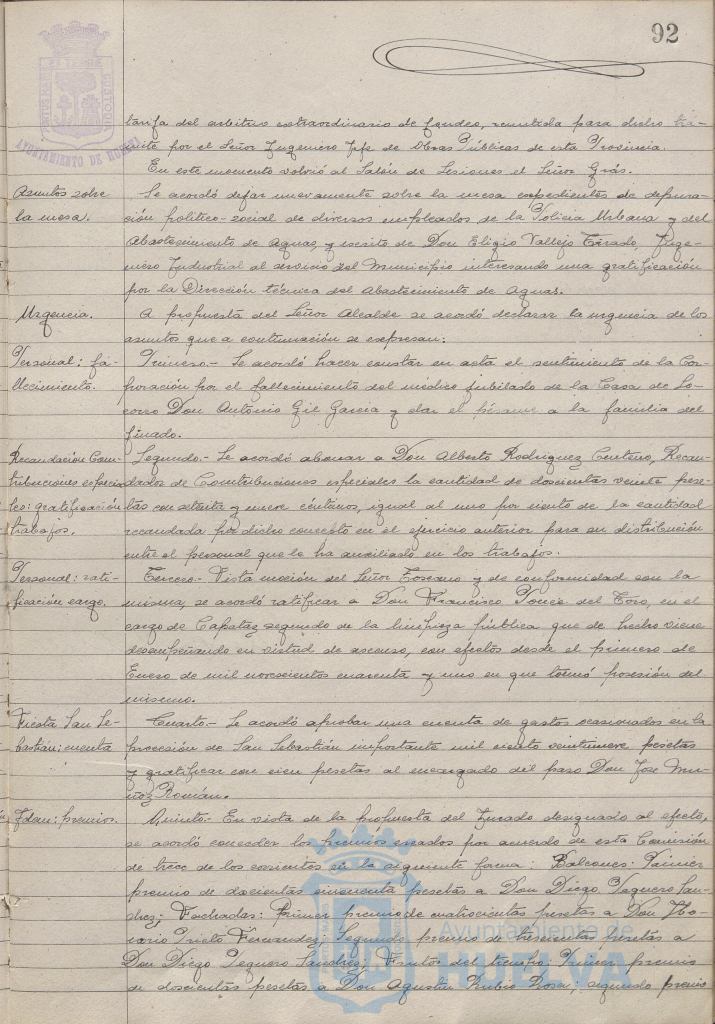 92
AYUNTAMIENTO DE HUELVA
tarifa del arbitrio extraordinario de rondeo, remitida para dicho trá-
mite por el Señor Ingeniero Jefe de Obras Públicas de esta Provincia.
En este momento volvió al Salón de Sesiones el Señor Grás.
Asuntos sobre
la mesa.
Se acordó dejar nuevamente sobre la mesa expedientes de depura-
ción político-social de diversos empleados de la Policia Urbana y del
Abastecimiento de Aguas, y escrito de Don Eligio Vallejo Tirado, Inge-
niero Industrial al servicio del Municipio interesando una gratificación
por la Dirección técnica del Abastecimiento de Aguas.
Urgencia.
A propuesta del Señor Alcalde se acordó declarar la urgencia de los
asuntos que a continuación se expresan:
Personal: fa-
llecimiento.
Primero.- Se acordó hacer constar en acta el sentimiento de la Cor-
poración por el fallecimiento del médico jubilado de la Casa de So-
corro Don Antonio Gil Garcia y dar el pésame a la familia del
finado.
Recaudación Con-
tribuciones especia-
les: gratificación
trabajos.
Segundo.- Se acordó abonar a Don Alberto Rodriguez Centeno, Recau-
dador de Contribuciones especiales la cantidad de doscientas veinte pese-
tas con setenta y nueve céntimos, igual al uno por ciento de la cantidad
recaudada por dicho concepto en el ejercicio anterior para su distribución
entre el personal que le ha auxiliado en los trabajos.
Personal: rati-
ficación cargo.
Tercero- Vista moción del Señor Toscano y de conformidad con la
misma, se acordó ratificar a Don Francisco Ponce del Toro, en el
cargo de Capataz segundo de la limpieza pública que de hecho viene
desempeñando en virtud de ascenso, con efectos desde el primero de
Enero de mil novecientos cuarenta y uno en que tomó posesión del
mismo.
Fiesta San Se-
bastián: cuenta
Cuarto- Se acordó aprobar una cuenta de gastos ocasionados en la
procesión de San Sebastián importante mil ciento veintinueve pesetas
y gratificar con cien pesetas al encargado del paso Don Jose Mu-
ñoz Román.
Idem: premios.
Quinto- En vista de la propuesta del Jurado designado al efecto,
se acordó conceder los premios creados por acuerdo de esta Comisión
de trece de los corrientes en la siguiente forma: Balcones: Primer
premio de doscientas cincuenta pesetas a Don Diego Peguero San-
chez; Fachadas: Primer premio de cuatrocientas pesetas a Don Ho-
norio Prieto Fernandez; Segundo premio de trescientas pesetas a
Don Diego Peguero Sanchez; Frutos del tiempo: Primer premio
de doscientas pesetas a Don Agustin Rubio Rosa; segundo premio
Ayuntamiento de
HUELVA